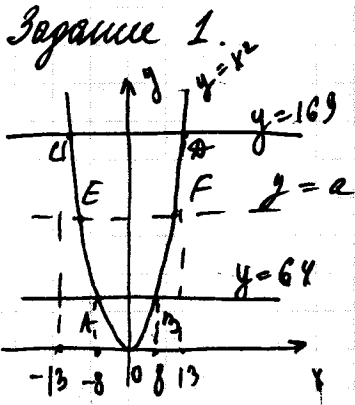 Задание 1.
y
y = x²
y = 169
D
E
F
y = a
y = 64
A
B
-13 -8 0 8 13
x